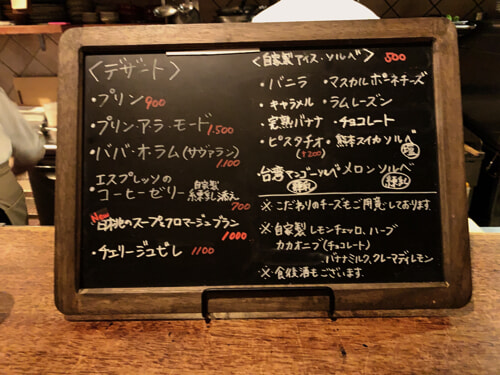 〈デザート〉
・プリン 900
・プリン・ア・ラ・モード 1.500
・ババ・オ・ラム(サヴァラン) 1.100
・エスプレッソの
コーヒーゼリー 自家製
練乳添え 700
New
・白桃のスープとフロマージュブラン
1000
・チェリージュビレ 1100
〈自家製アイス・ソルベ〉 500
・バニラ ・マスカルポーネチーズ
・キャラメル ・ラムレーズン
・完熟バナナ ・チョコレート
・ピスタチオ ・熊本スイカソルベ
(+200)
台湾マンゴーソルベ メロンソルベ
※こだわりのチーズもご用意しております
※自家製レモンチェッロ、ハーブ
カカオニブ(チョコレート)
バナナミルク、クレーマディレモン
※食後酒もございます。